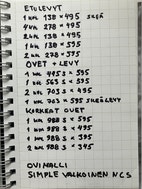 ETULEVYT
1 KPL 138 x 495
4 KPL 278 x 495
2 KPL 138 x 495
1 KPL 138 x 595
2 KPL 278 x 595
OVET + LEVY
1 KPL 495 x 595
1 KPL 563 x 595
2 KPL 703 x 495
1 KPL 703 x 595
KORKEAT OVET
1 KPL 988 x 595
1 KPL 988 x 495
1 KPL 988 x 395
2 KPL 988 x 345
OVIMALLI
SIMPLE VALKOINEN NCS